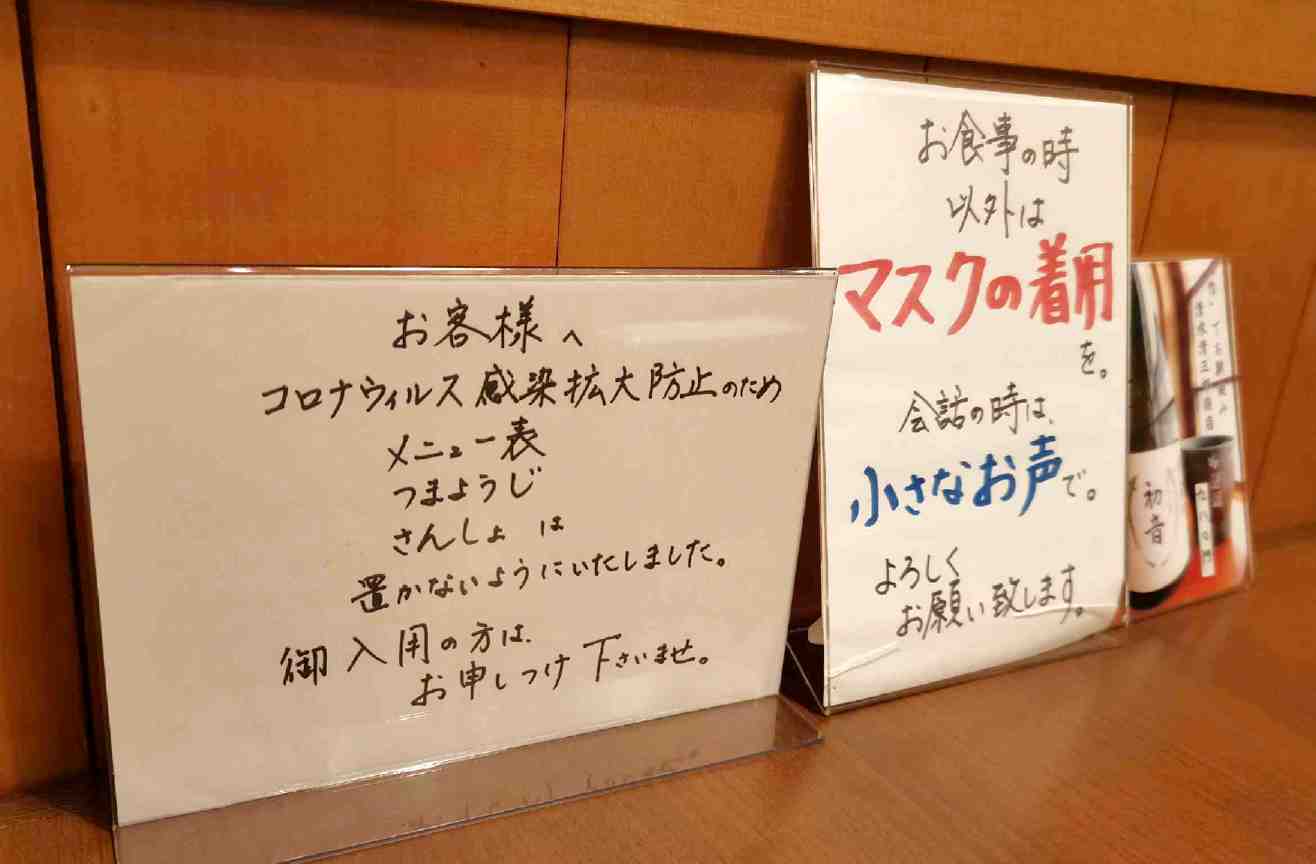 お客様へ
コロナウィルス感染拡大防止のため
メニュー表
つまようじ
さんしょは
置かないようにいたしました。
御入用の方は、
お申しつけ下さいませ。
お食事の時
以外は
マスクの着用
を。
会話の時は、
小さなお声で。
よろしく
お願い致します。
初音